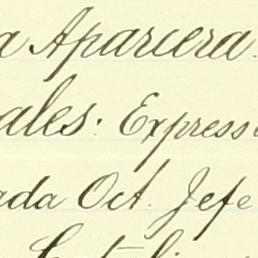 a Aparicera.
ales. Express
ada Oct. Jefe